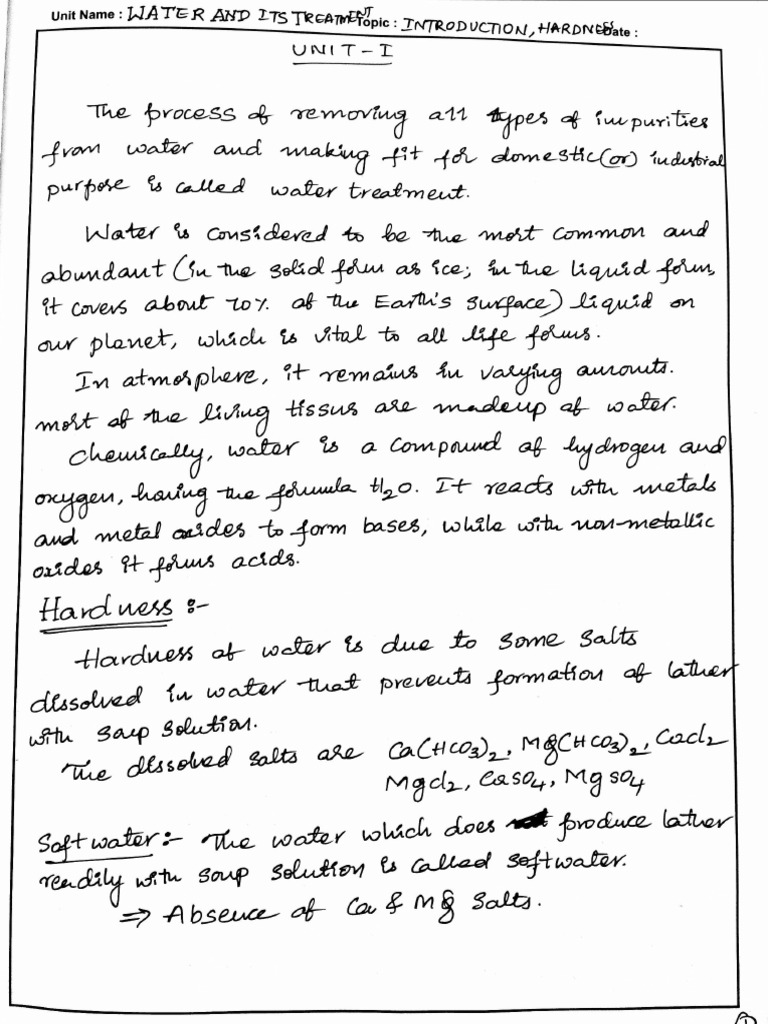 Unit Name : WATER AND ITS TREATMENT Topic : INTRODUCTION, HARDNESS Date :
UNIT - I
The process of removing all types of impurities
from water and making fit for domestic (or) industrial
purpose is called water treatment.
Water is considered to be the most common and
abundant (in the solid form as ice; in the liquid form,
it covers about 70% of the Earth's surface) liquid on
our planet, which is vital to all life forms.
In atmosphere, it remains in varying amounts.
most of the living tissus are madeup of water.
Chemically, water is a compound of hydrogen and
oxygen, having the formula H2O. It reacts with metals
and metal oxides to form bases, while with non-metallic
oxides it forms acids.
Hardness :-
Hardness of water is due to some salts
dissolved in water that prevents formation of lather
with soup solution.
The dissolved salts are Ca(HCO3)2, Mg(HCO3)2, CaCl2
MgCl2, CaSO4, MgSO4
Soft water :- The water which does produce lather
readily with soup solution is called softwater.
⇒ Absence of Ca & Mg salts.